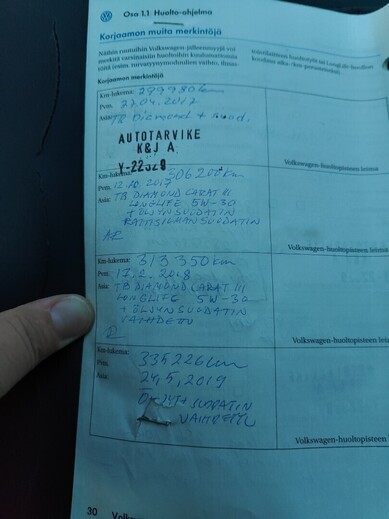 Osa 1.1 Huolto-ohjelma
Korjaamon muita merkintöjä
Näihin ruutuihin Volkswagen-jälleenmyyjä voi
merkitä varsinaisiin huoltoihin kuulumattomia
töitä (esim. turvatyynymoduulien vaihto, ilman
Korjaamon merkintöjä
Km-lukema: 299930 km
Pvm. 27.04.2017
Asia: TB Diamond + suod.
AUTOTARVIKE
K&J A.
Y-22620
Volkswagen-huoltopisteen leima
Km-lukema: 306200 km
Pvm. 12.10.2017
Asia: TB DIAMOND CARAT III
LONGLIFE 5W-30
+ ÖLJYNSUODATIN
RAITISILMANSUODATIN
Volkswagen-huoltopisteen leima
Km-lukema: 313 350 km
Pvm. 17.2.2018
Asia: TB DIAMOND CARAT III
LONGLIFE 5W-30
+ ÖLJYNSUODATIN
VAIHDETTU
Volkswagen-huoltopisteen leima
Km-lukema: 335226 km
Pvm. 24.5.2019
Asia: ÖLJYT+SUODATIN
VAIHDETTU
Volkswagen-huoltopisteen
30